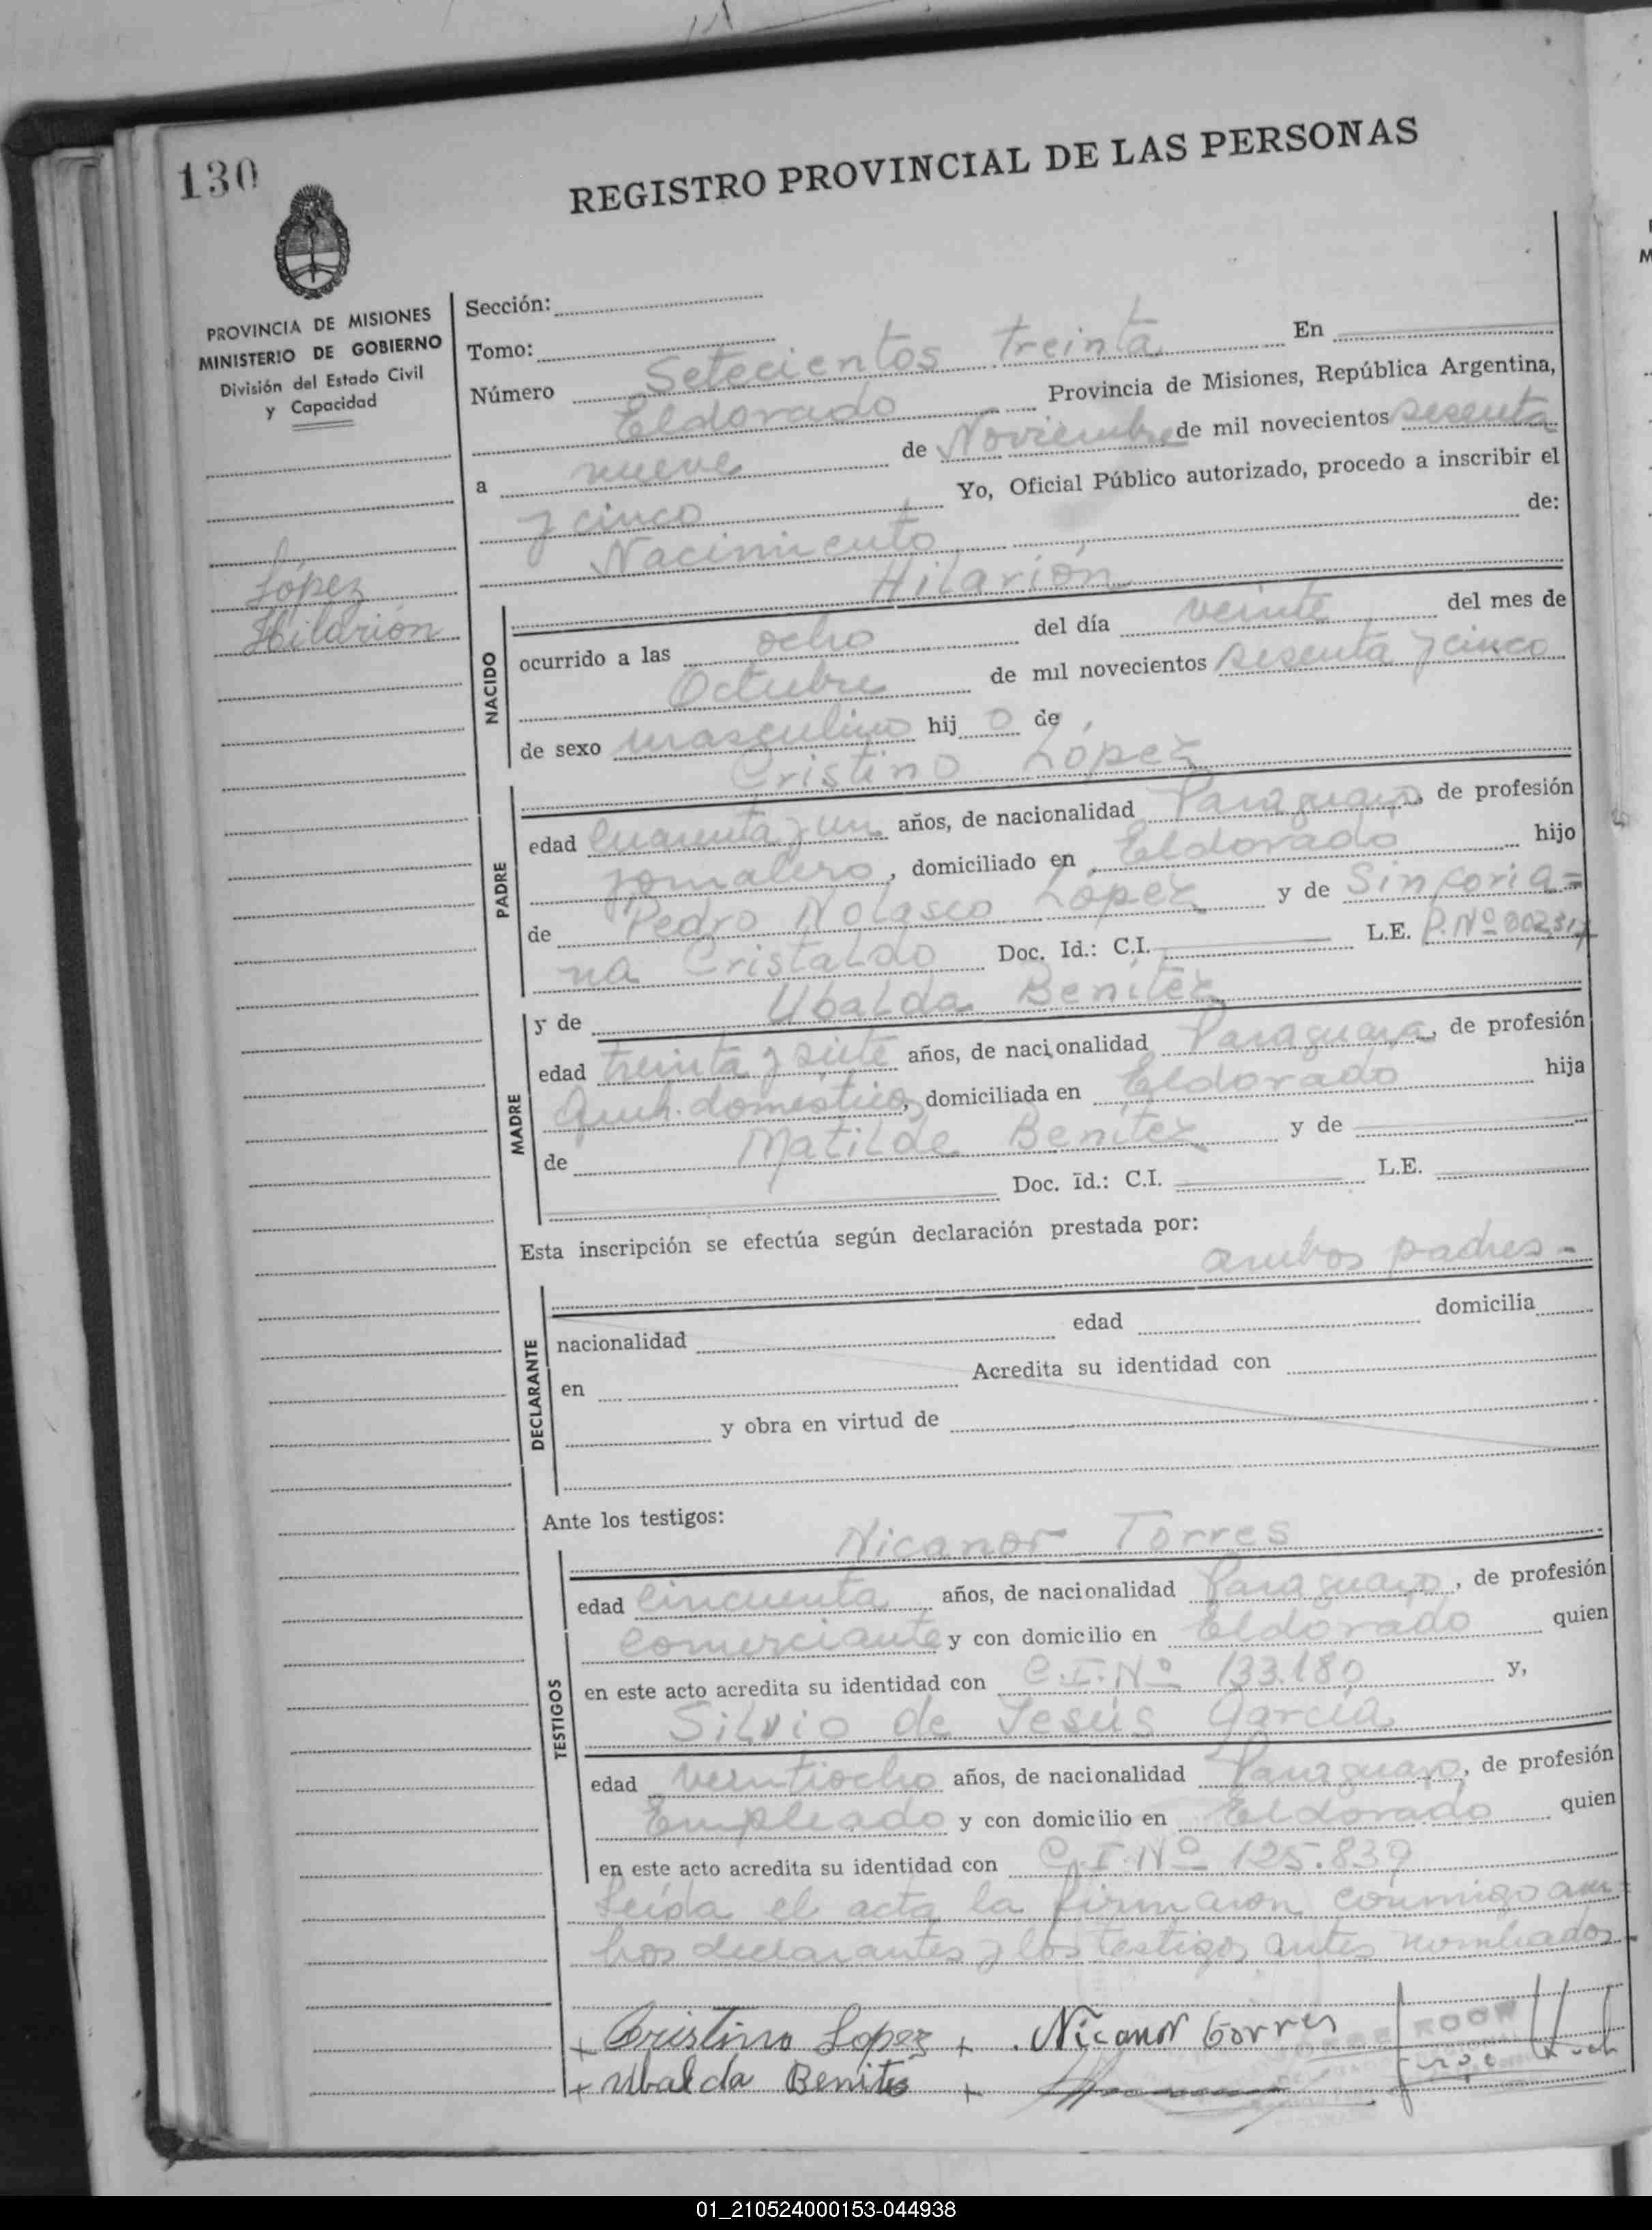 130
REGISTRO PROVINCIAL DE LAS PERSONAS
PROVINCIA DE MISIONES
MINISTERIO DE GOBIERNO
División del Estado Civil
y Capacidad
López
Hilarión
Sección:
Tomo:
Número Setecientos treinta En
Eldorado Provincia de Misiones, República Argentina,
a nueve de Noviembre de mil novecientos sesenta
y cinco Yo, Oficial Público autorizado, procedo a inscribir el
Nacimiento de:
Hilarión
NACIDO
ocurrido a las ocho del día veinte del mes de
Octubre de mil novecientos sesenta y cinco
de sexo masculino hijo de
Cristino López
PADRE
edad cuarenta y un años, de nacionalidad Paraguayo, de profesión
jornalero, domiciliado en Eldorado hijo
de Pedro Nolasco López y de Sinforia-
na Cristaldo Doc. Id.: C.I. L.E. P. Nº
y de Ubalda Benítez
MADRE
edad treinta y siete años, de nacionalidad Paraguaya, de profesión
domésticos, domiciliada en Eldorado hija
de Matilde Benítez y de
Doc. id.: C.I. L.E.
Esta inscripción se efectúa según declaración prestada por:
ambos padres-
DECLARANTE
nacionalidad edad domicilia
en Acredita su identidad con
y obra en virtud de
Ante los testigos:
Nicanor Torres
TESTIGOS
edad cincuenta años, de nacionalidad Paraguayo, de profesión
comerciante y con domicilio en Eldorado quien
en este acto acredita su identidad con C.I. Nº 133.180 y,
Silvio de Jesús García
edad veintiocho años, de nacionalidad Paraguayo, de profesión
Empleado y con domicilio en Eldorado quien
en este acto acredita su identidad con C.I. Nº 125.839
Leída el acta la firmaron conmigo am-
bos declarantes y los testigos antes nombrados.
+ Cristino Lopez + Nicanor Torres
+ Ubalda Benites +
01_210524000153-044938